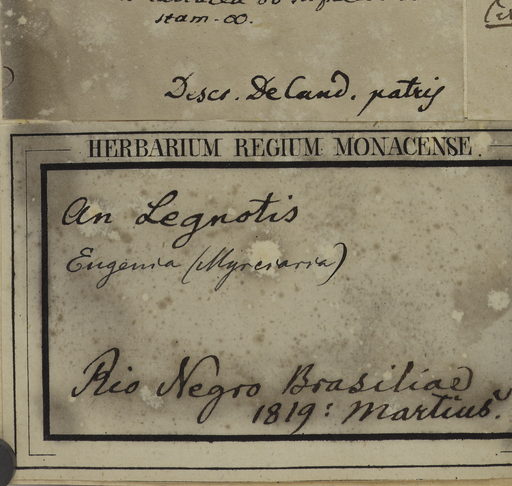 stam. ∞.
Descr. DeCand. patris
HERBARIUM REGIUM MONACENSE.
An Legnotis
Eugenia (Myrciaria)
Rio Negro Brasiliae
1819: Martius.